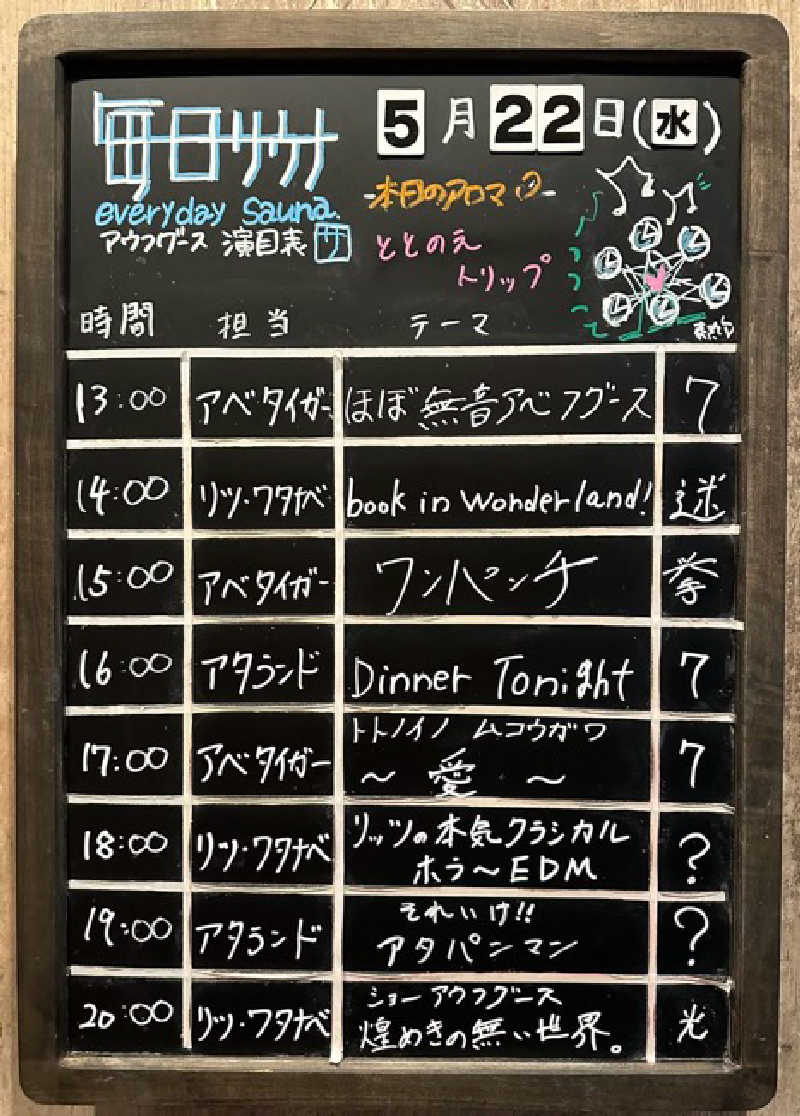 毎日サウナ
everyday Sauna.
アウフグース 演目表 サ
5月22日(水)
-本日のアロマ
ととのえ
トリップ
時間 担当 テーマ
13:00 アベタイガー ほぼ無音アベフグース 7
14:00 リツ・ワタナベ book in wonderland! 迷
15:00 アベタイガー ワンパンチ 拳
16:00 アタランド Dinner Tonight 7
17:00 アベタイガー トトノイノ ムコウガワ 7
～ 愛 ～
18:00 リツ・ワタナベ リッツの本気クラシカル ?
ホラ～EDM
19:00 アタランド それいけ!! ?
アタパンマン
20:00 リツ・ワタナベ ショーアウフグース 光
煌めきの無い世界。